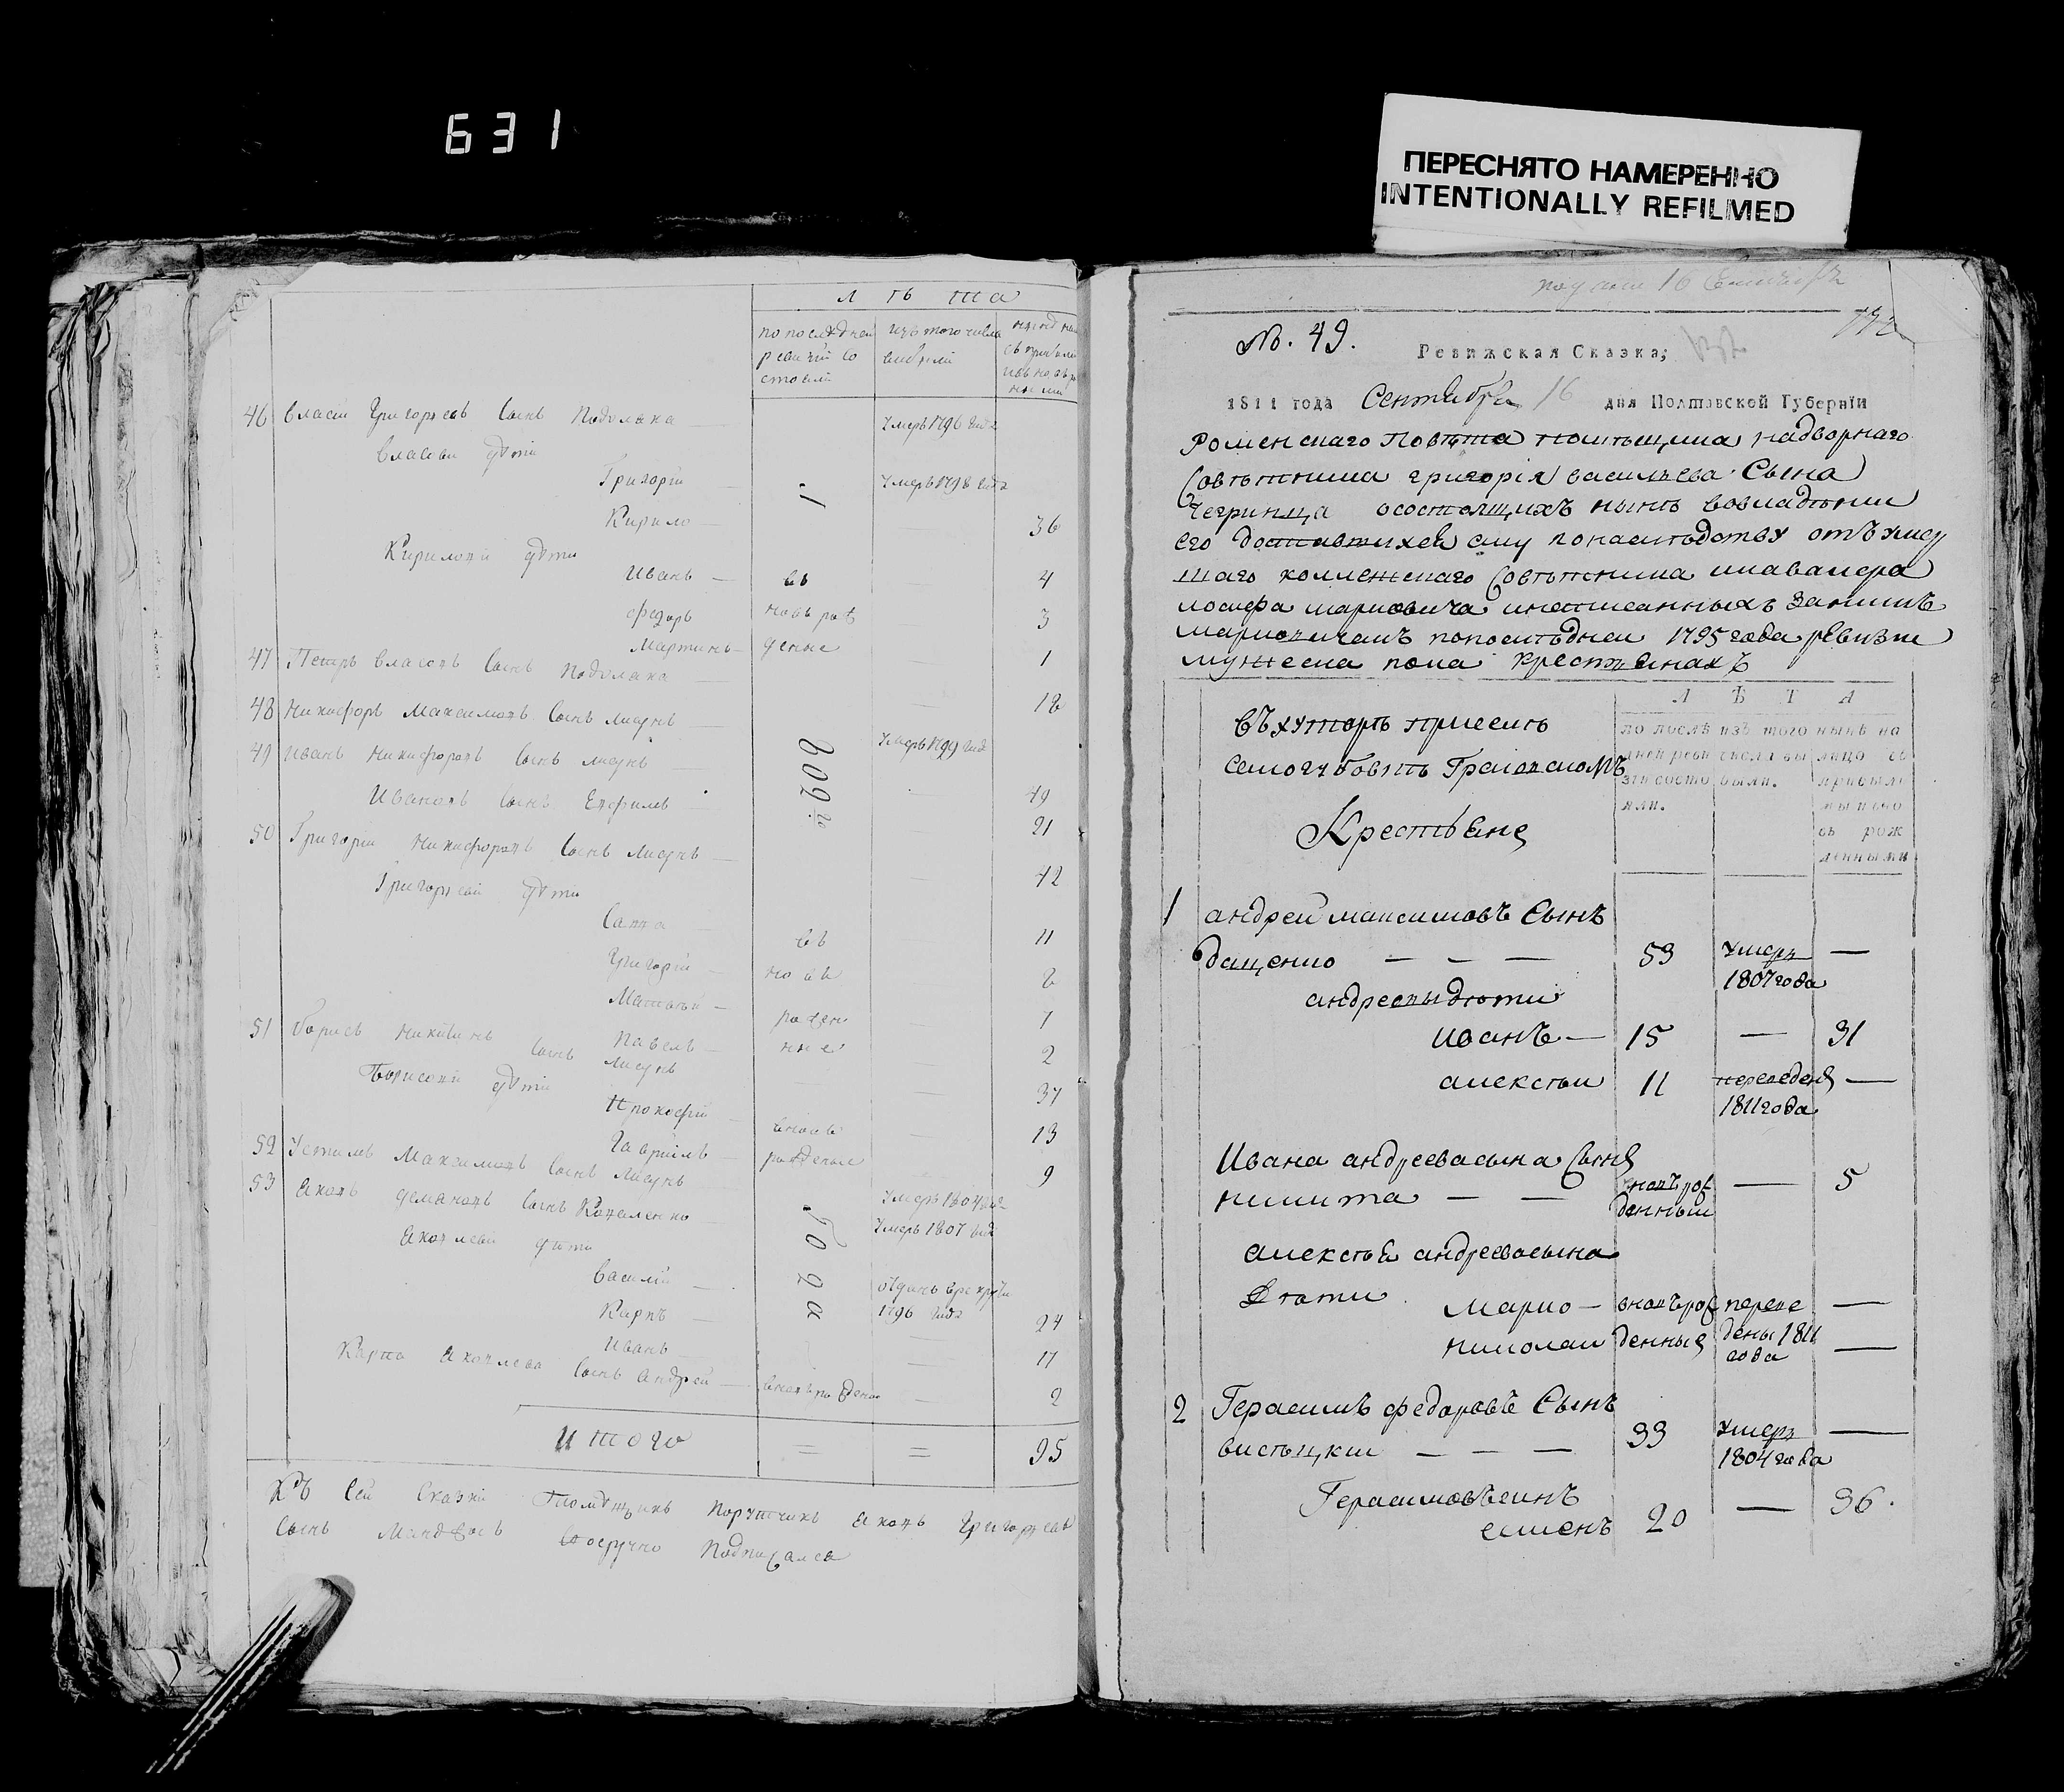 631
ПЕРЕСНЯТО НАМЕРЕННО
INTENTIONALLY REFILMED
лѣта
по последней ревизіи состояли
изъ того числа выбыли
46 Власъ Григорьевъ сынъ Подолака — умеръ 1796 года
Власови дѣти
Григорій — умеръ 1798 года
Кирило — 36
Кириловы дѣти
Иванъ — въ 4
Федоръ — новь рож 3
Мартинъ — деные 1
47 Петръ Власовъ сынъ Подолака — 18
48 Никифоръ Максимовъ сынъ Лисунъ — умеръ 1799 года
49 Иванъ Никифоровъ сынъ Лисунъ — 49
Ивановъ сынъ Евфимъ — 21
50 Григорій Никифоровъ сынъ Лисунъ — 42
Григорьевы дѣти
Савва — въ 11
Григорій — нова 6
Матвѣй — рожден 7
Павелъ — ные 2
51 Борисъ Никитинъ сынъ Лисунъ 37
Борисовы дѣти
Прокофій — вновь 13
Гавріилъ — рожденые 9
52 Устимъ Максимовъ сынъ Лисунъ — умеръ 1804 года
53 Яковъ Демяновъ сынъ Коваленко — умеръ 1807 года
Яковлевы дѣти
Василій — отданъ врекруты 1796 года
Карпъ — 24
Иванъ — 17
Карпа Яковлева сынъ Андрей — вновь рожденъ — 2
Итого = = 95
Къ сей сказкѣ помѣщикъ порутчикъ Яковъ Григорьевъ
сынъ своеручно подписался
16 Сентября
№. 49.
Ревижская Сказка;
1811 года Сентября 16 дня Полтавской Губерніи
Роменскаго повѣта помѣщика надворнаго
Совѣтника григорія васильева Сына
Чегринца осостоящихъ нынѣ вовладѣнии
его доставшихся ему понаслѣдству отъ умер
шаго коллежскаго Совѣтника икавалера
иосифа марковича инаписанныхъ занимъ
марковичамъ попослѣдней 1795 года ревизіи
мужеска пола крестьянахъ
ЛѢТА
въ хуторѣ приселѣ
по послѣдней ревизіи состояли.
изъ того числа выбыли.
нынѣ на лицо съ прибылыми и вновь рожденными
Крестьяне
1 андрей максимовъ Сынъ
дащенко — — — 53 умеръ 1807 года —
андреевы дѣти
иванъ — 15 — 31
алексѣй 11 переведенъ 1811 года —
Ивана андреева сына Сынъ
никита — — вновь рожденный — 5
алексѣя андреева сына
дѣти марко — вновь рож переве —
николай денные дены 1811 года —
2 Герасимъ федоровъ Сынъ
висѣцкій — — — 33 умеръ 1804 года —
Герасимовъ сынъ
семенъ 20 — 36.